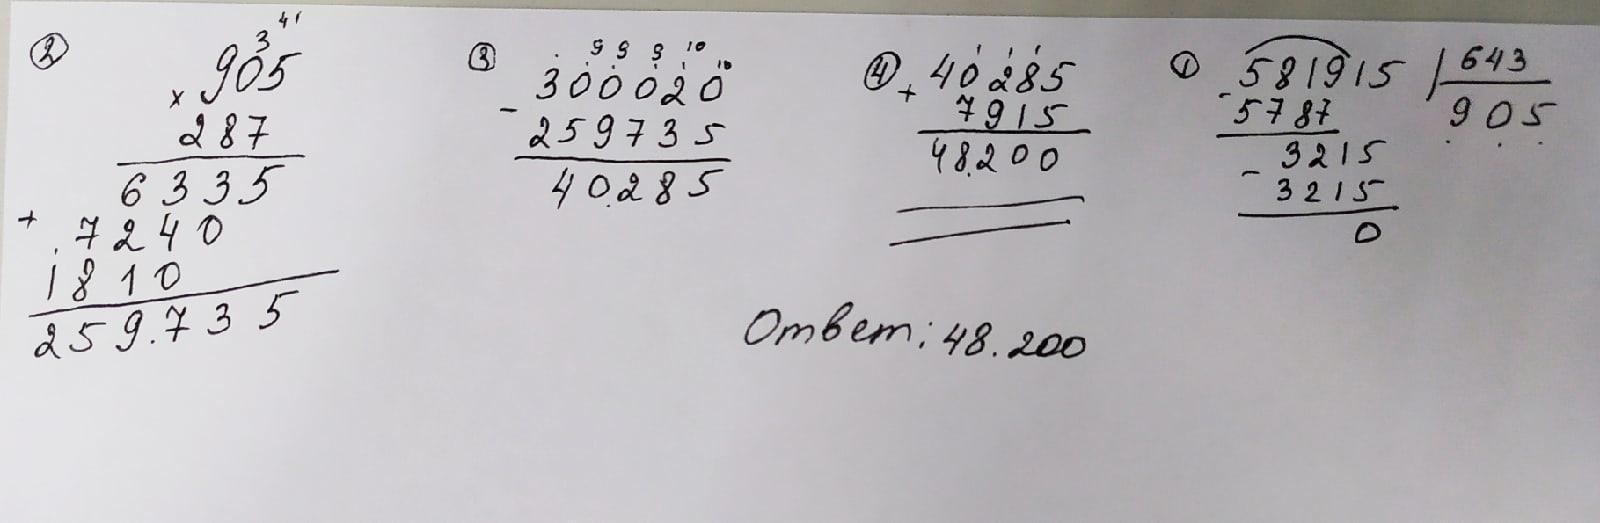 ② 3 4 1
905
x 287
6335
+ 7240
1810
259.735
③ 9 9 9 10 10
300020
- 259735
40.285
④ 1 1 1
40285
+ 7915
48.200
① 581915 | 643
- 5787 905
3215
- 3215
0
Ответ: 48.200